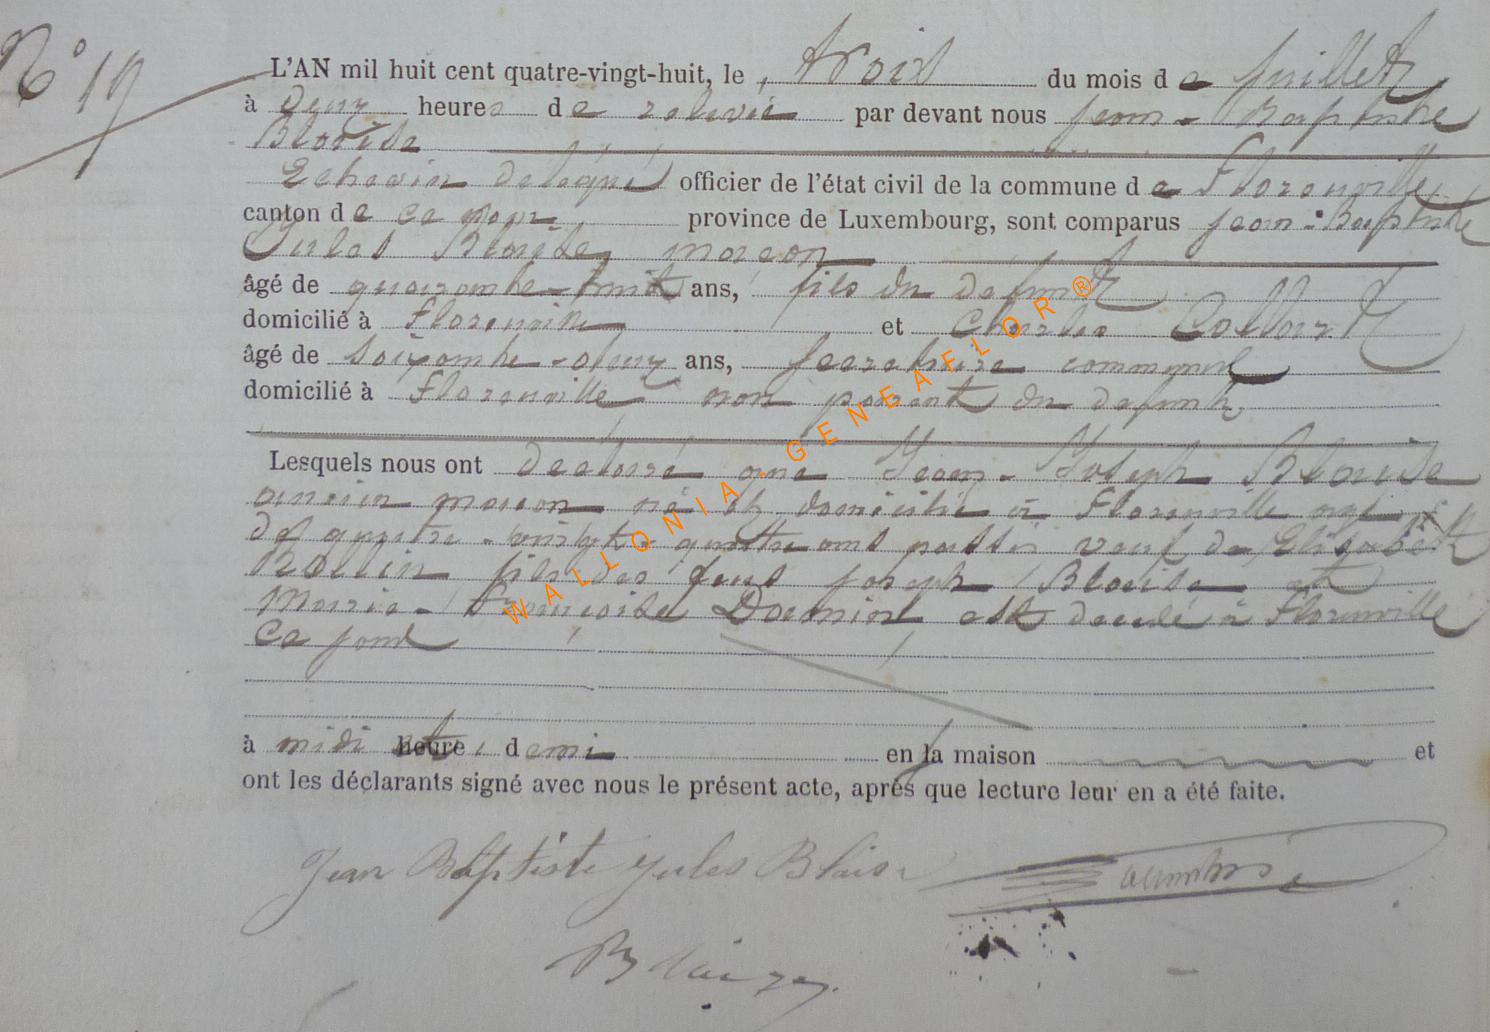 N° 19
L'AN mil huit cent quatre-vingt-huit, le trois du mois de Juillet
à deux heures de relevée par devant nous Jean-Baptiste
Blaise
Echevin délégué officier de l'état civil de la commune de Florenville
canton de ce nom province de Luxembourg, sont comparus Jean-Baptiste
Jules Blaise, maçon
âgé de quarante-huit ans, fils du défunt
domicilié à Florenville et Charles
âgé de soixante-deux ans, secrétaire communal
domicilié à Florenville non parent du défunt,
Lesquels nous ont déclaré que Jean-Joseph Blaise
ancien maçon né et domicilié à Florenville agé
de quatre-vingt-quatre ans passés veuf de Elisabeth
Rollin fils des feus Joseph Blaise et
Marie-Françoise est décédé à Florenville
Ce jourd
à midi et demi en la maison et
ont les déclarants signé avec nous le présent acte, après que lecture leur en a été faite.
Jean Baptiste Jules Blaise
Blaize
WALLONIA - GENEAFLOR ®